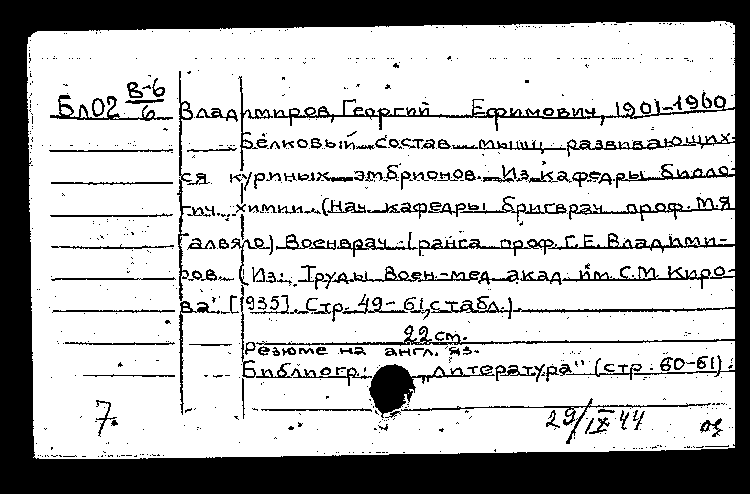 Бл02 В-6/6 Владимиров, Георгий Ефимович, 1901-1960
Белковый состав мышц развивающих-
ся куриных эмбрионов. Из кафедры биоло-
гич. химии. (Нач. кафедры бригврач проф. М.Я
Галвяло). Военврач I ранга проф. Г.Е. Владими-
ров. (Из: Труды Воен-мед. акад. им. С.М. Киро-
ва" [1935]. Стр. 49-61, с табл.).
22 см.
Резюме на англ. яз.
Библиогр: "Литература" (стр. 60-61).
7. 29/IX 44